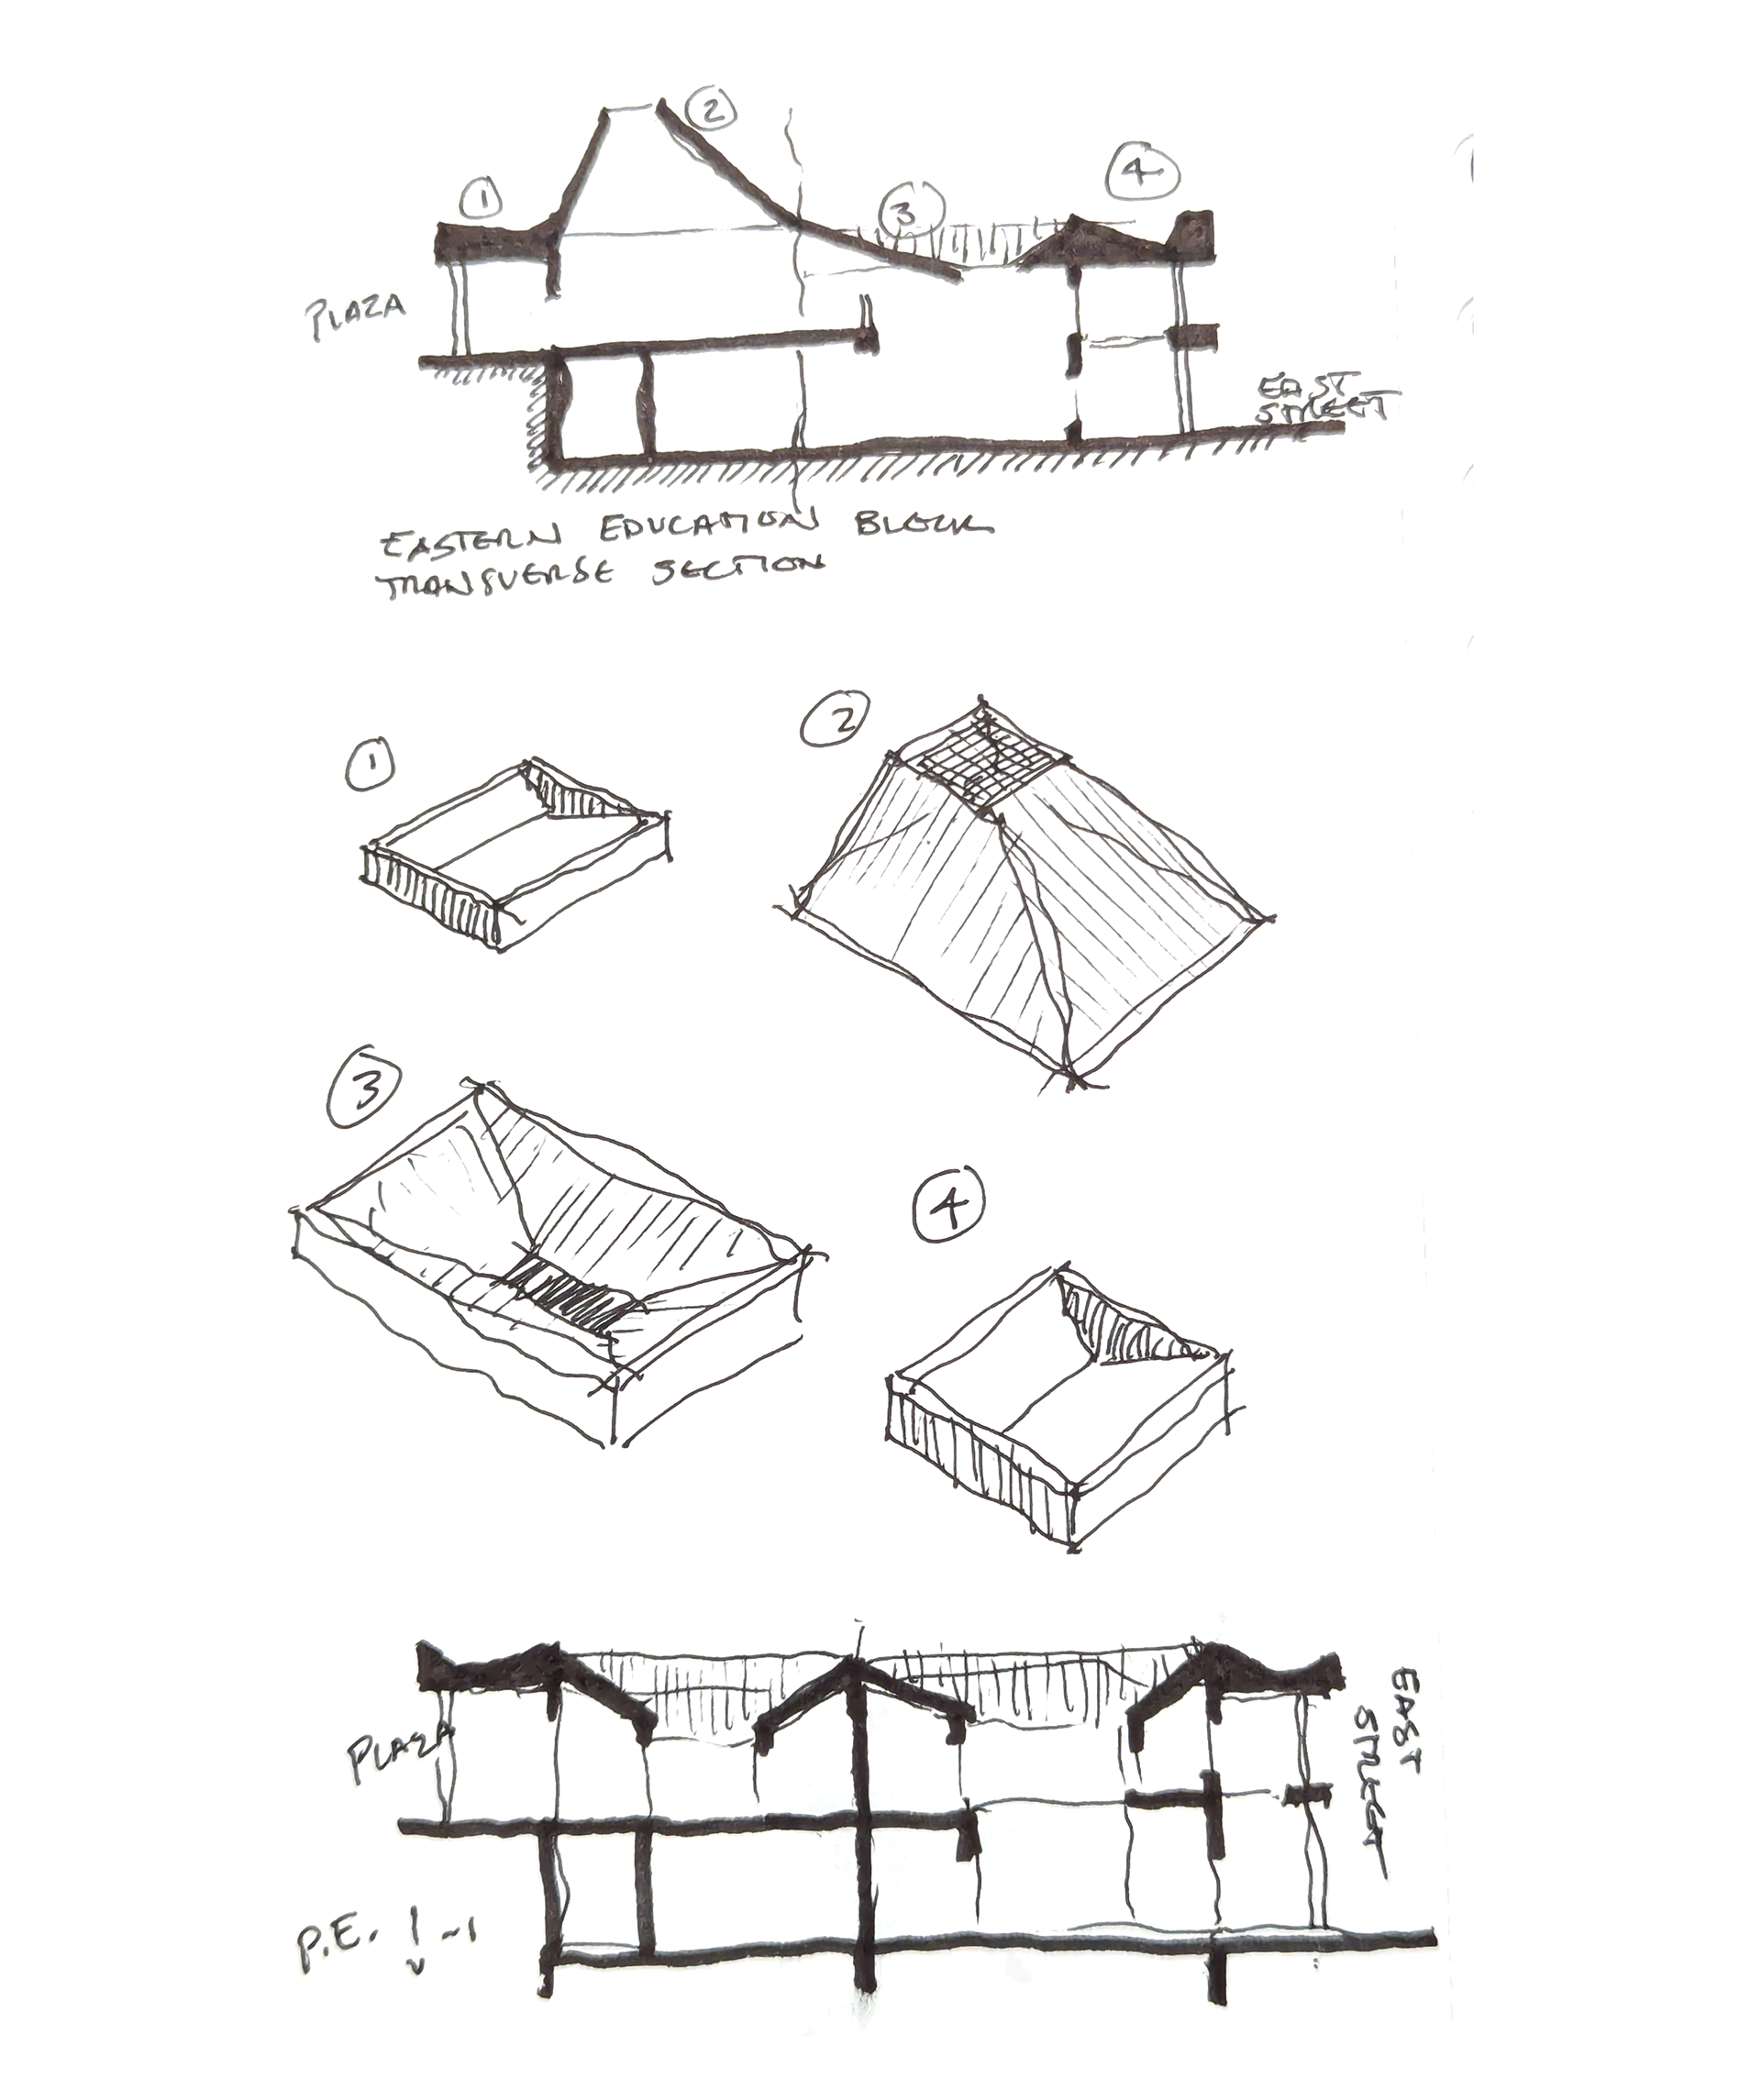 2
1
4
3
PLAZA
EAST
STREET
EASTERN EDUCATION BLOCK
TRANSVERSE SECTION
2
1
3
4
PLAZA
EAST
STREET
P.E.